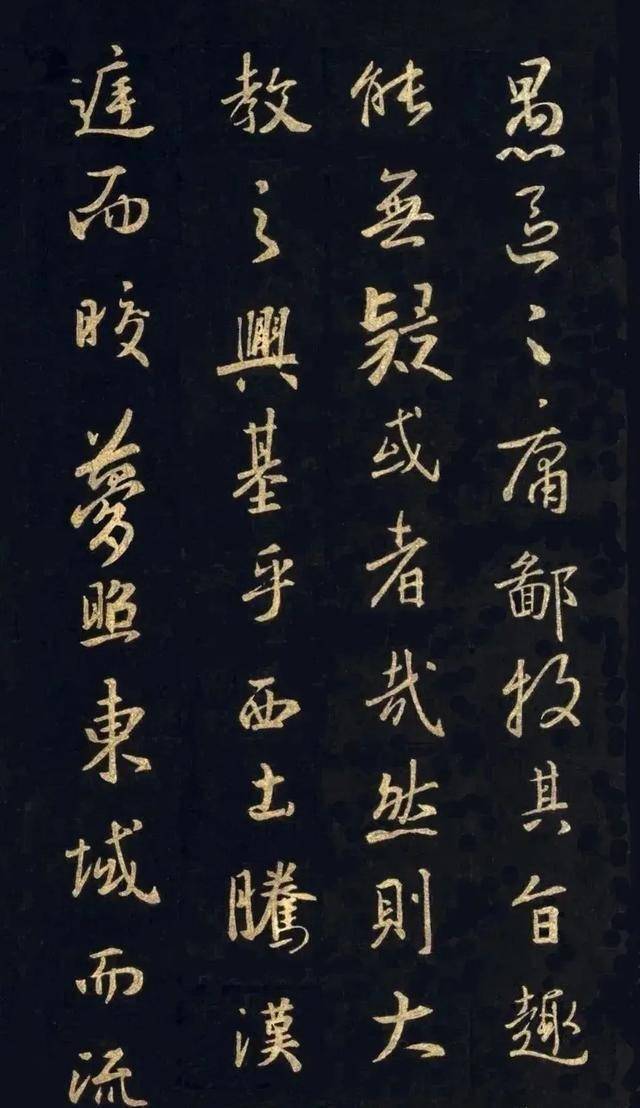 愚區々庸鄙投其旨趣
能無疑或者哉然則大
教之興基乎西土騰漢
庭而晈夢照東域而流